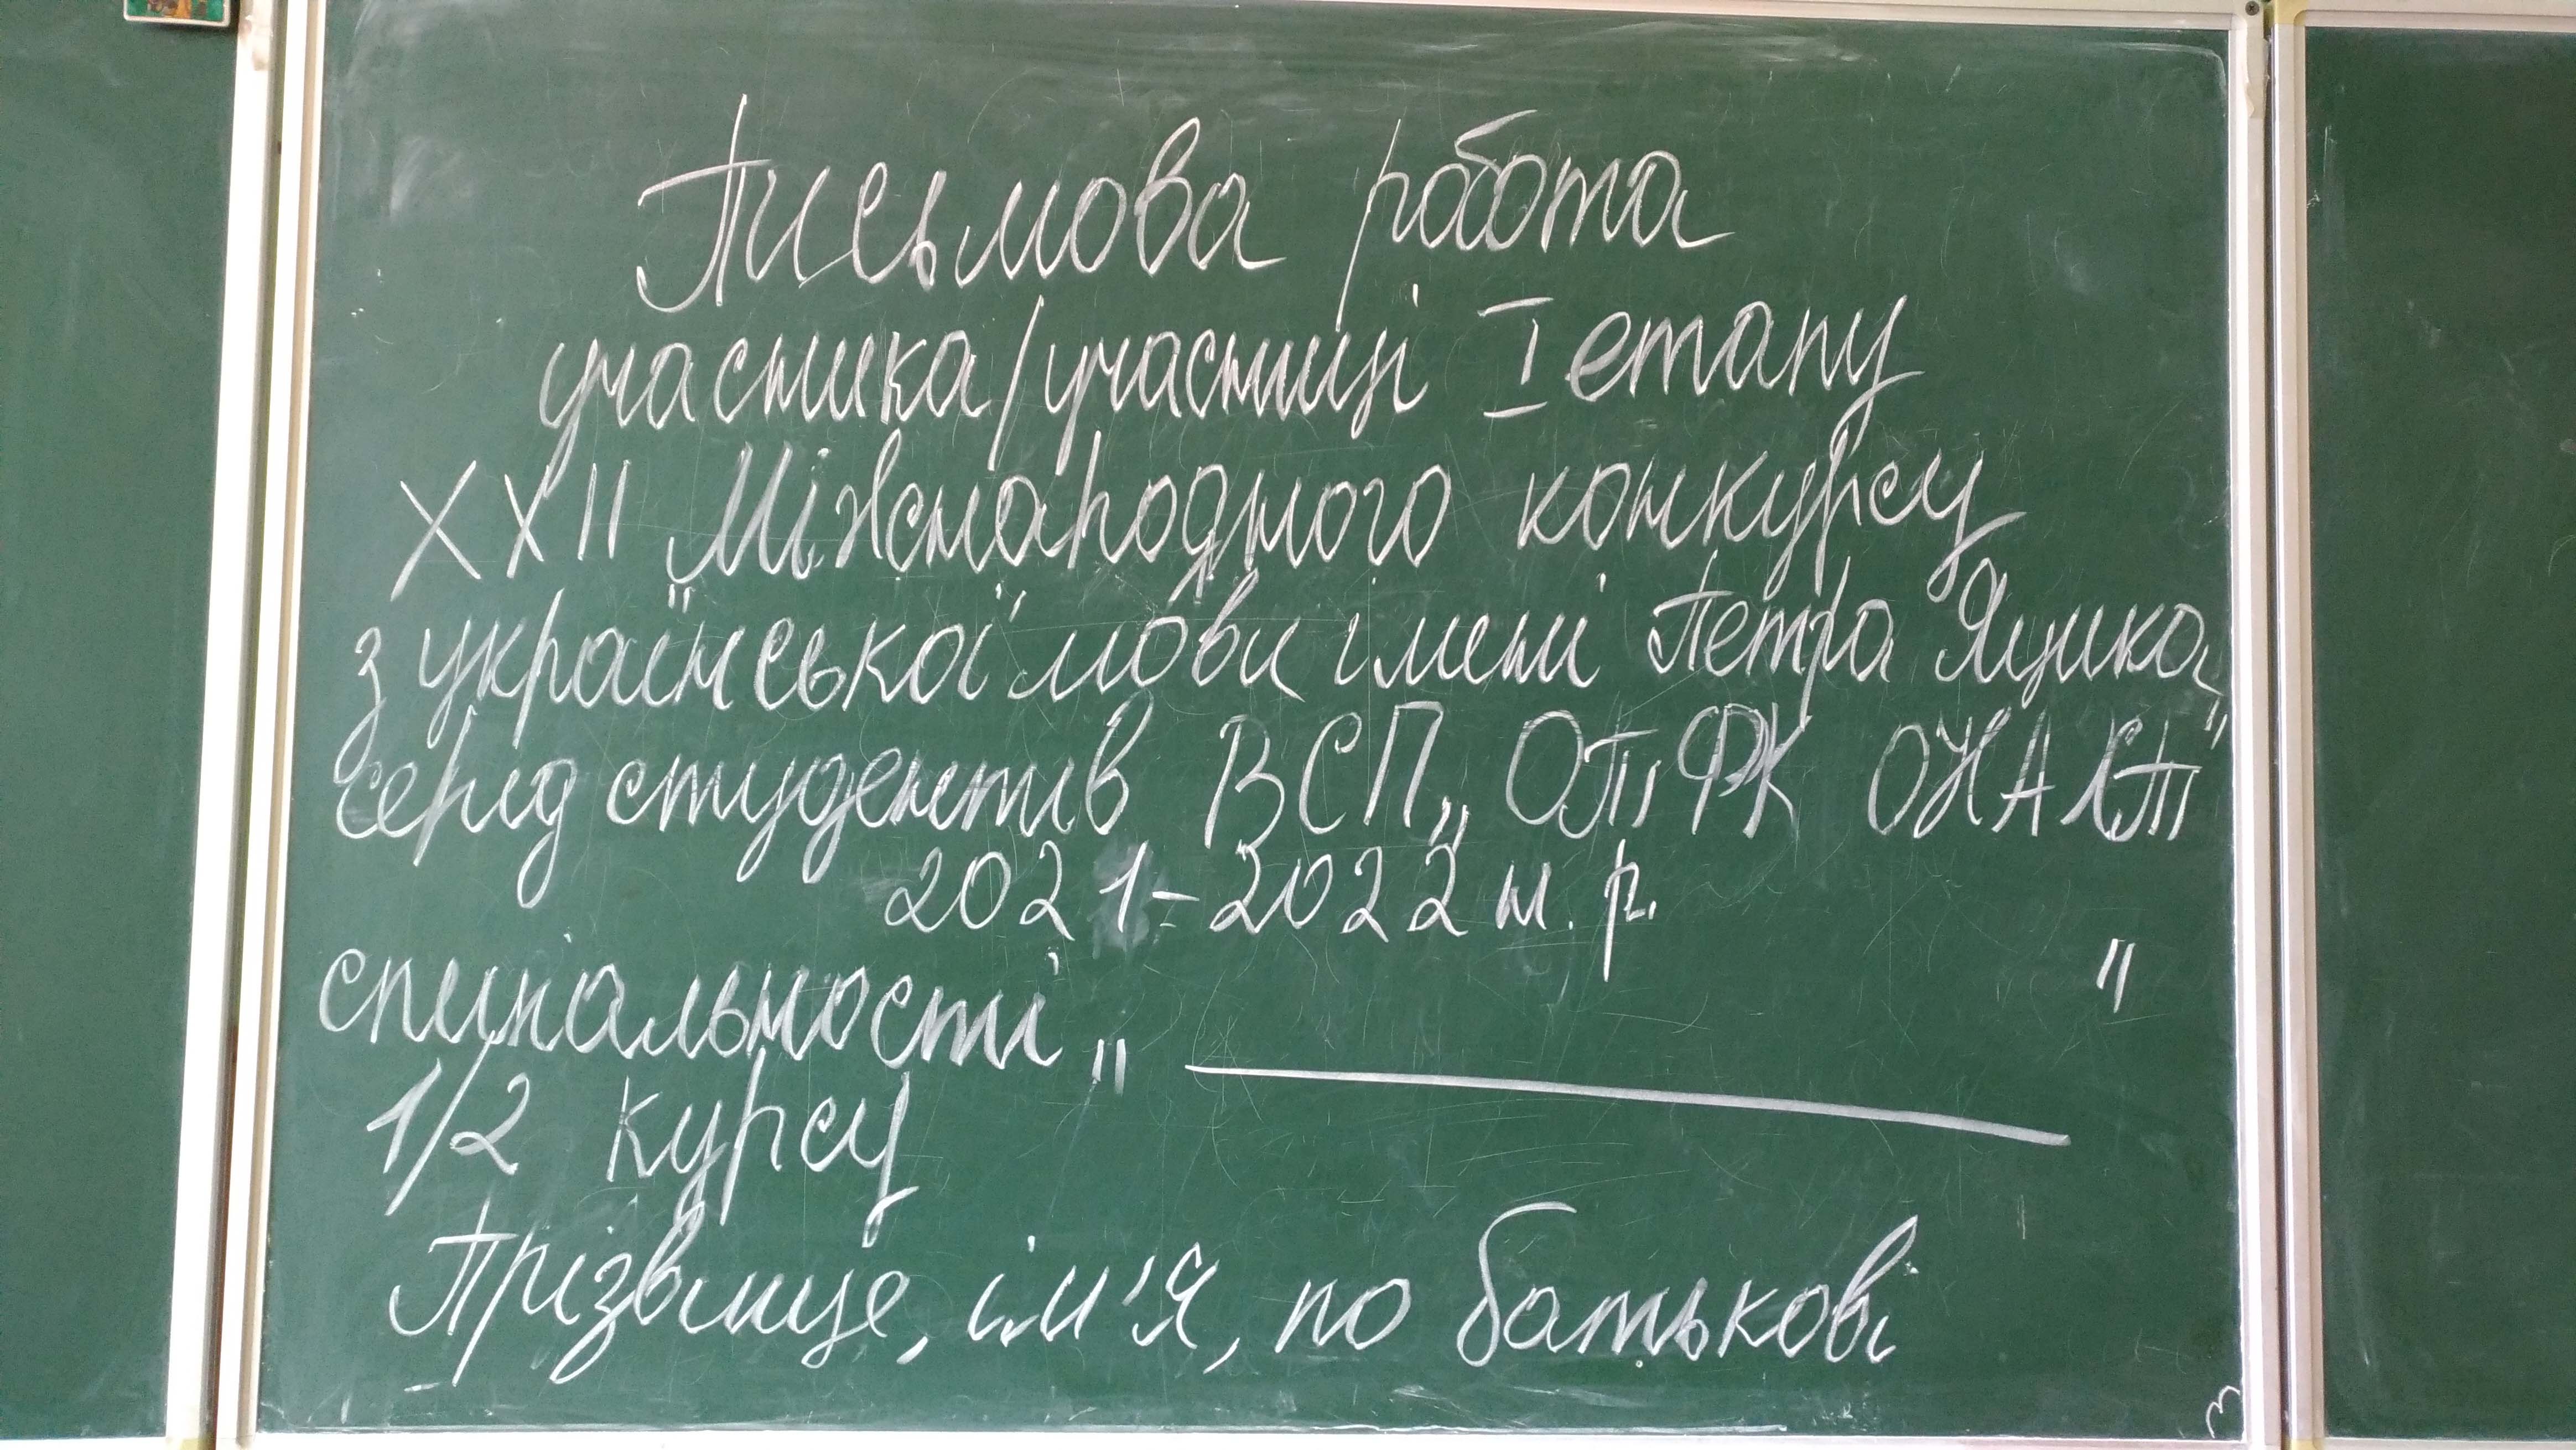 Письмова робота
учасника/учасниці I етапу
XXII Міжнародного конкурсу
з української мови імені Петра Яцика
серед студентів ВСП „ОТФК ОНАХТ"
2021-2022 н. р.
спеціальності „ "
1/2 курсу
Прізвище, ім'я, по батькові